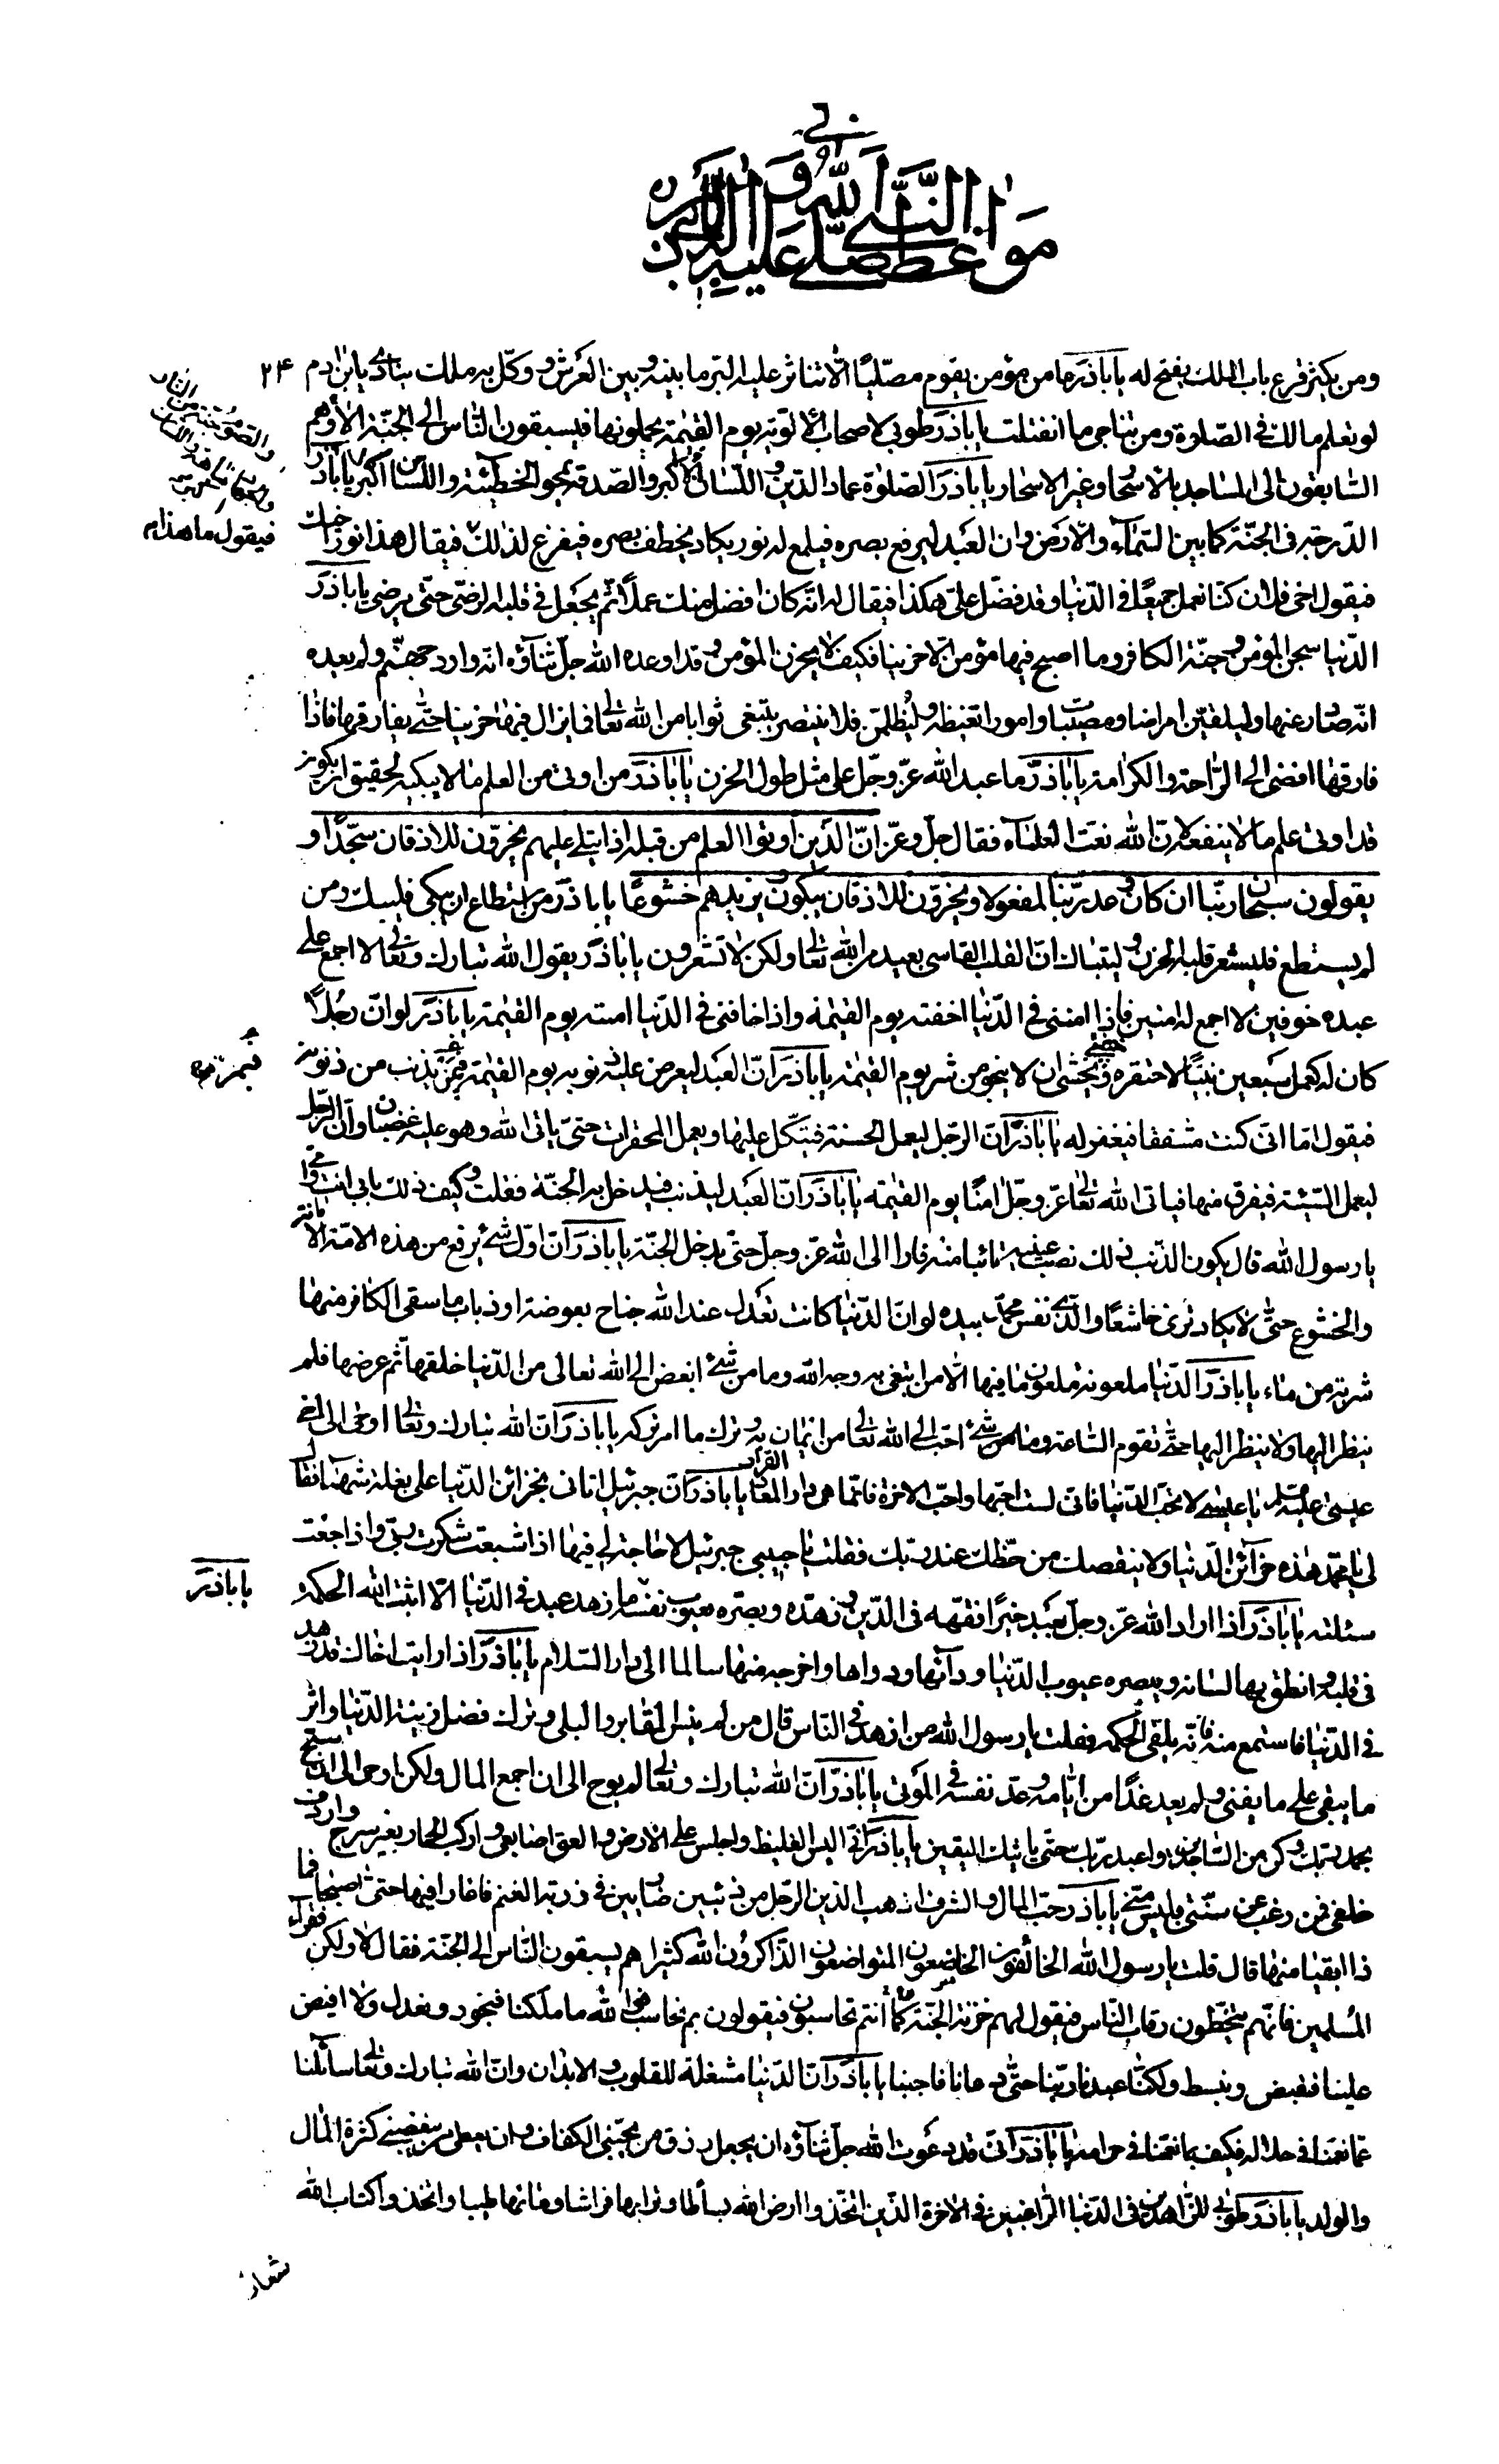 في
مواعظ النبي صلى الله عليه وآله لأبي ذر
ومن يكثر قرع باب الملك يفتح له يا باذر ما من مؤمن يقوم مصلّيًا الّا تناثر عليه البرّ ما بينه وبين العرش و وكّل به ملك ينادي يا بن ادم
٢۴
لو تعلم مالك في الصلوة ومن تناجي ما انفتلت يا باذر طوبى لاصحاب الالوية يوم القيمة يحملونها فيسبقون الناس الى الجنة الا وهم
السابقون الى المساجد بالاسحار وغير الاسحار يا باذر الصلوة عماد الدين واللسان اكبر والصدقة تمحو الخطيئة واللسان اكبر يا باذر
والصوم جنة من النار
الدرجة في الجنة كما بين السماء والارض وان العبد ليرفع بصره فيلمع له نور يكاد يخطف بصره فيفزع لذلك فيقال هذا نور اخيك
فيقول ما هذا
فيقول اخي فلان كنا نعمل جميعًا في الدنيا وقد فضّل عليّ هكذا فيقال له انه كان افضل منك عملًا ثم يجعل في قلبه الرضى حتى يرضى يا باذر
الدنيا سجن المؤمن وجنة الكافر وما اصبح فيها مؤمن الا حزينا فكيف لا يحزن المؤمن وقد اوعده الله جل ثناؤه انه وارد جهنم ولم يعده
انه صادر عنها وليلقين امراضا ومصيبات وامورا تغيظه وليظلمن فلا ينتصر يبتغي ثوابا من الله تعالى فما يزال فيها حزينا حتى يفارقها فاذا
فارقها افضى الى الراحة والكرامة يا باذر ما عبد الله عز وجل على مثل طول الحزن يا باذر من اوتي من العلم ما لا يبكيه لحقيق ان يكون
قد اوتي علم ما لا ينفعه لان الله نعت العلماء فقال جل وعز ان الذين اوتوا العلم من قبله اذا يتلى عليهم يخرون للاذقان سجدًا و
يقولون سبحان ربنا ان كان وعد ربنا لمفعولا ويخرون للاذقان يبكون ويزيدهم خشوعًا يا باذر من استطاع ان يبكي فليبك ومن
لم يستطع فليشعر قلبه الحزن وليتباك ان القلب القاسي بعيد من الله تعالى ولكن لا تشعرون يا باذر يقول الله تبارك وتعالى لا اجمع على
عبده خوفين ولا اجمع له امنين فاذا امنني في الدنيا اخفته يوم القيمة واذا خافني في الدنيا امنته يوم القيمة يا باذر لو ان رجلًا
كان له كعمل سبعين نبيًّا لاحتقره وخشي ان لا ينجو من شر يوم القيمة يا باذر ان العبد ليعرض عليه ذنوبه يوم القيمة فيمن ذنب من ذنوبه
فيقول اما اني كنت مشفقا فيغفر له يا باذر ان الرجل ليعمل الحسنة فيتكل عليها ويعمل المحقرات حتى ياتي الله وهو عليه غضبان وان الرجل
ليعمل السيئة فيفرق منها فياتي الله تعالى عز وجل امنًا يوم القيمة يا باذر ان العبد ليذنب فيدخل به الجنة فقلت وكيف ذلك بابي انت وامي
يا رسول الله قال يكون الذنب ذلك نصب عينيه تائبا منه فارا الى الله عز وجل حتى يدخل الجنة يا باذر ان اول شيء يرفع من هذه الامة الامانة
والخشوع حتى لا يكاد ترى خاشعًا والذي نفس محمد بيده لو ان الدنيا كانت تعدل عند الله جناح بعوضة او ذباب ما سقى الكافر منها
شربة من ماء يا باذر الدنيا ملعونة ملعون ما فيها الا من ابتغى به وجه الله وما من شيء ابغض الى الله تعالى من الدنيا خلقها ثم عرضها فلم
ينظر اليها ولا ينظر اليها حتى تقوم الساعة وما من شيء احب الى الله تعالى من ايمان به وترك ما امر بتركه يا باذر ان الله تبارك وتعالى اوحى الى اخي
عيسى عليه السلام يا عيسى لا تحب الدنيا فاني لست احبها واحب الاخرة فانما هي دار المعاد يا باذر ان جبرئيل اتاني بخزائن الدنيا على بغلة شهباء فقال
لي يا محمد هذه خزائن الدنيا ولا ينقصك من حظك عند ربك فقلت يا حبيبي جبرئيل لا حاجة لي فيها اذا شبعت شكرت ربي واذا جعت
سئلته يا باذر اذا اراد الله عز وجل بعبد خيرًا فقهه في الدين وزهده وبصره بعيوب نفسه ما زهد عبد في الدنيا الا اثبت الله الحكمة
يا باذر
في قلبه وانطق بها لسانه ويبصره عيوب الدنيا وداءها ودواها واخرجه منها سالما الى دار السلام يا باذر اذا رايت اخاك قد زهد
في الدنيا فاستمع منه فانه يلقى الحكمة فقلت يا رسول الله من ازهد الناس قال من لم ينس المقابر والبلى وترك فضل زينة الدنيا واثر
ما يبقى على ما يفنى ولم يعد غدًا من ايامه وعد نفسه في الموتى يا باذر ان الله تبارك وتعالى لم يوح الى ان اجمع المال ولكن اوحى الى ان سبح
بحمد ربك وكن من الساجدين واعبد ربك حتى ياتيك اليقين يا باذر اني البس الغليظ واجلس على الارض والعق اصابعي واركب الحمار بغير سرج واردف
خلفي فمن رغب عن سنتي فليس مني يا باذر حب المال والشرف اذهب لدين الرجل من ذئبين ضاريين في زربة الغنم فاغارا فيها حتى اصبحا فما
ذا ابقيا منها قال قلت يا رسول الله الخائفون الخاضعون المتواضعون الذاكرون الله كثيرا هم يسبقون الناس الى الجنة فقال لا ولكن فقراء
المسلمين فانهم يتخطون رقاب الناس فيقول لهم خزنة الجنة كما انتم حتى تحاسبوا فيقولون بم نحاسب فوالله ما ملكنا فنجود ونعدل ولا افيض
علينا فنقبض ونبسط ولكنا عبدنا ربنا حتى دعانا فاجبنا يا باذر ان الدنيا مشغلة للقلوب والابدان وان الله تبارك وتعالى سائلنا
عما نعمنا في حلاله فكيف بما نعمنا في حرامه يا باذر اني قد دعوت الله جل ثناؤه ان يجعل رزق من يحبني الكفاف وان يعطي من يبغضني كثرة المال
والولد يا باذر طوبى للزاهدين في الدنيا الراغبين في الاخرة الذين اتخذوا ارض الله بساطا وترابها فراشا وماءها طيبا واتخذوا كتاب الله
شعار